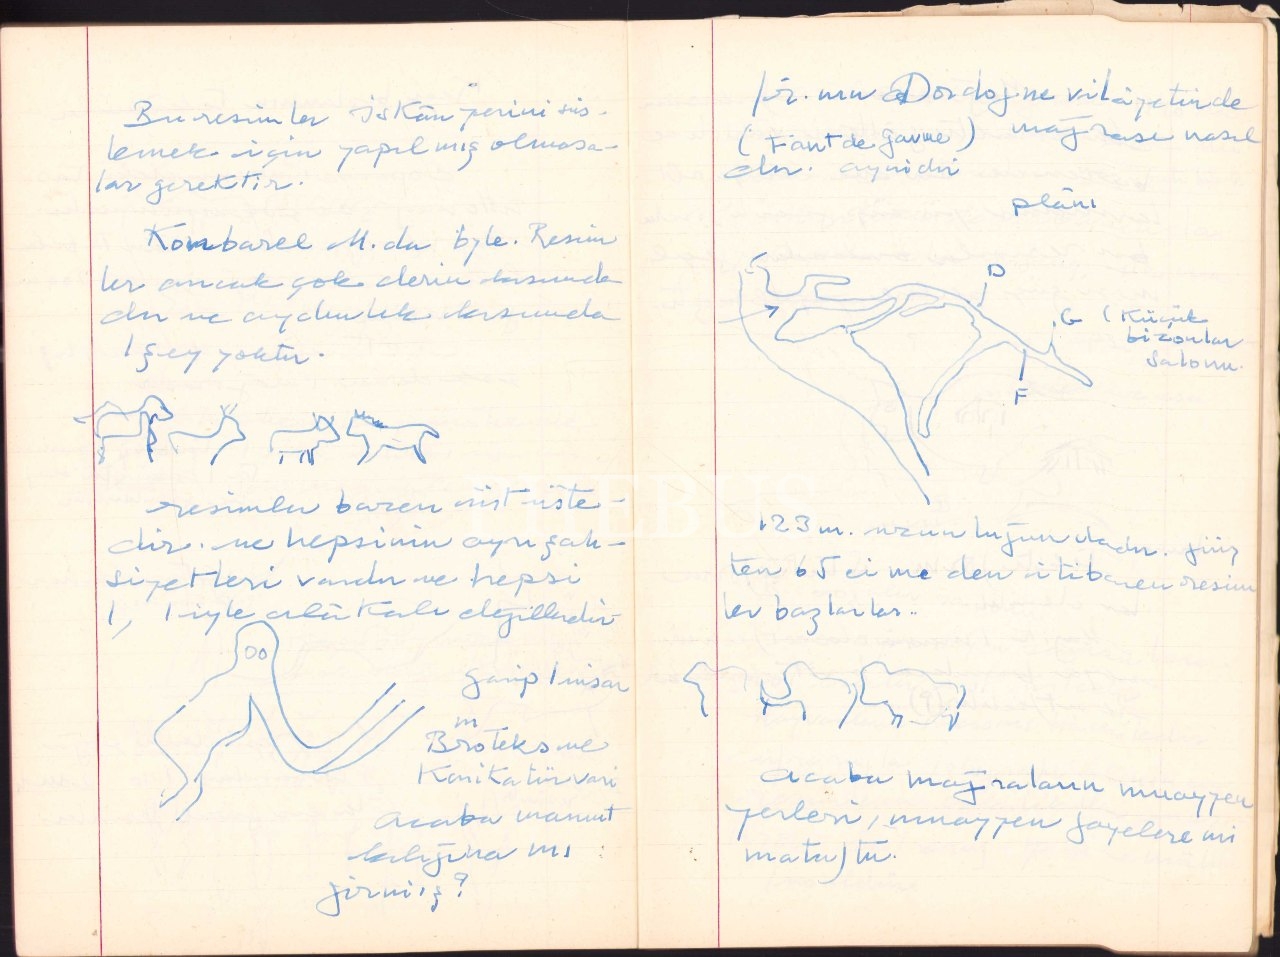 Bu resimler iskân yerini süs-
lemek için yapılmış olmasa-
lar gerektir.
Kombarel M. da böyle. Resim
ler ancak çok derin kısımda
dır ve aydınlık kısımda
1 şey yoktur.
resimler bazen üst üste-
dir. ve hepsinin ayrı şah-
siyetleri vardır ve hepsi
1, 1 iyle alâkalı değillerdir
garip 1 insan
m
Broteks ve
Karikatür vari
acaba mamut
kılığına mı
girmiş?
Fr. nın Dordojne vilâyetinde
(Fant de gaume) mağrası nasıl
dır. aynidir
plânı
D
G (Küçük
bizonlar
salonu.
F
123 m. uzunluğundadır. giriş
ten 65 ci me den itibaren resim
ler başlarlar..
acaba mağraların muayyen
yerleri, muayyen gayelere mi
matuftu.
THEBUS